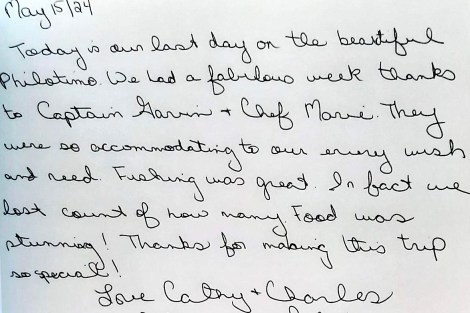 May 15/24
Today is our last day on the beautiful
Philotimo. We had a fabulous week thanks
to Captain Garvin + Chef Marie. They
were so accommodating to our every wish
and need. Fishing was great. In fact we
lost count of how many Food was
stunning! Thanks for making this trip
so special!
Love Cathy + Charles